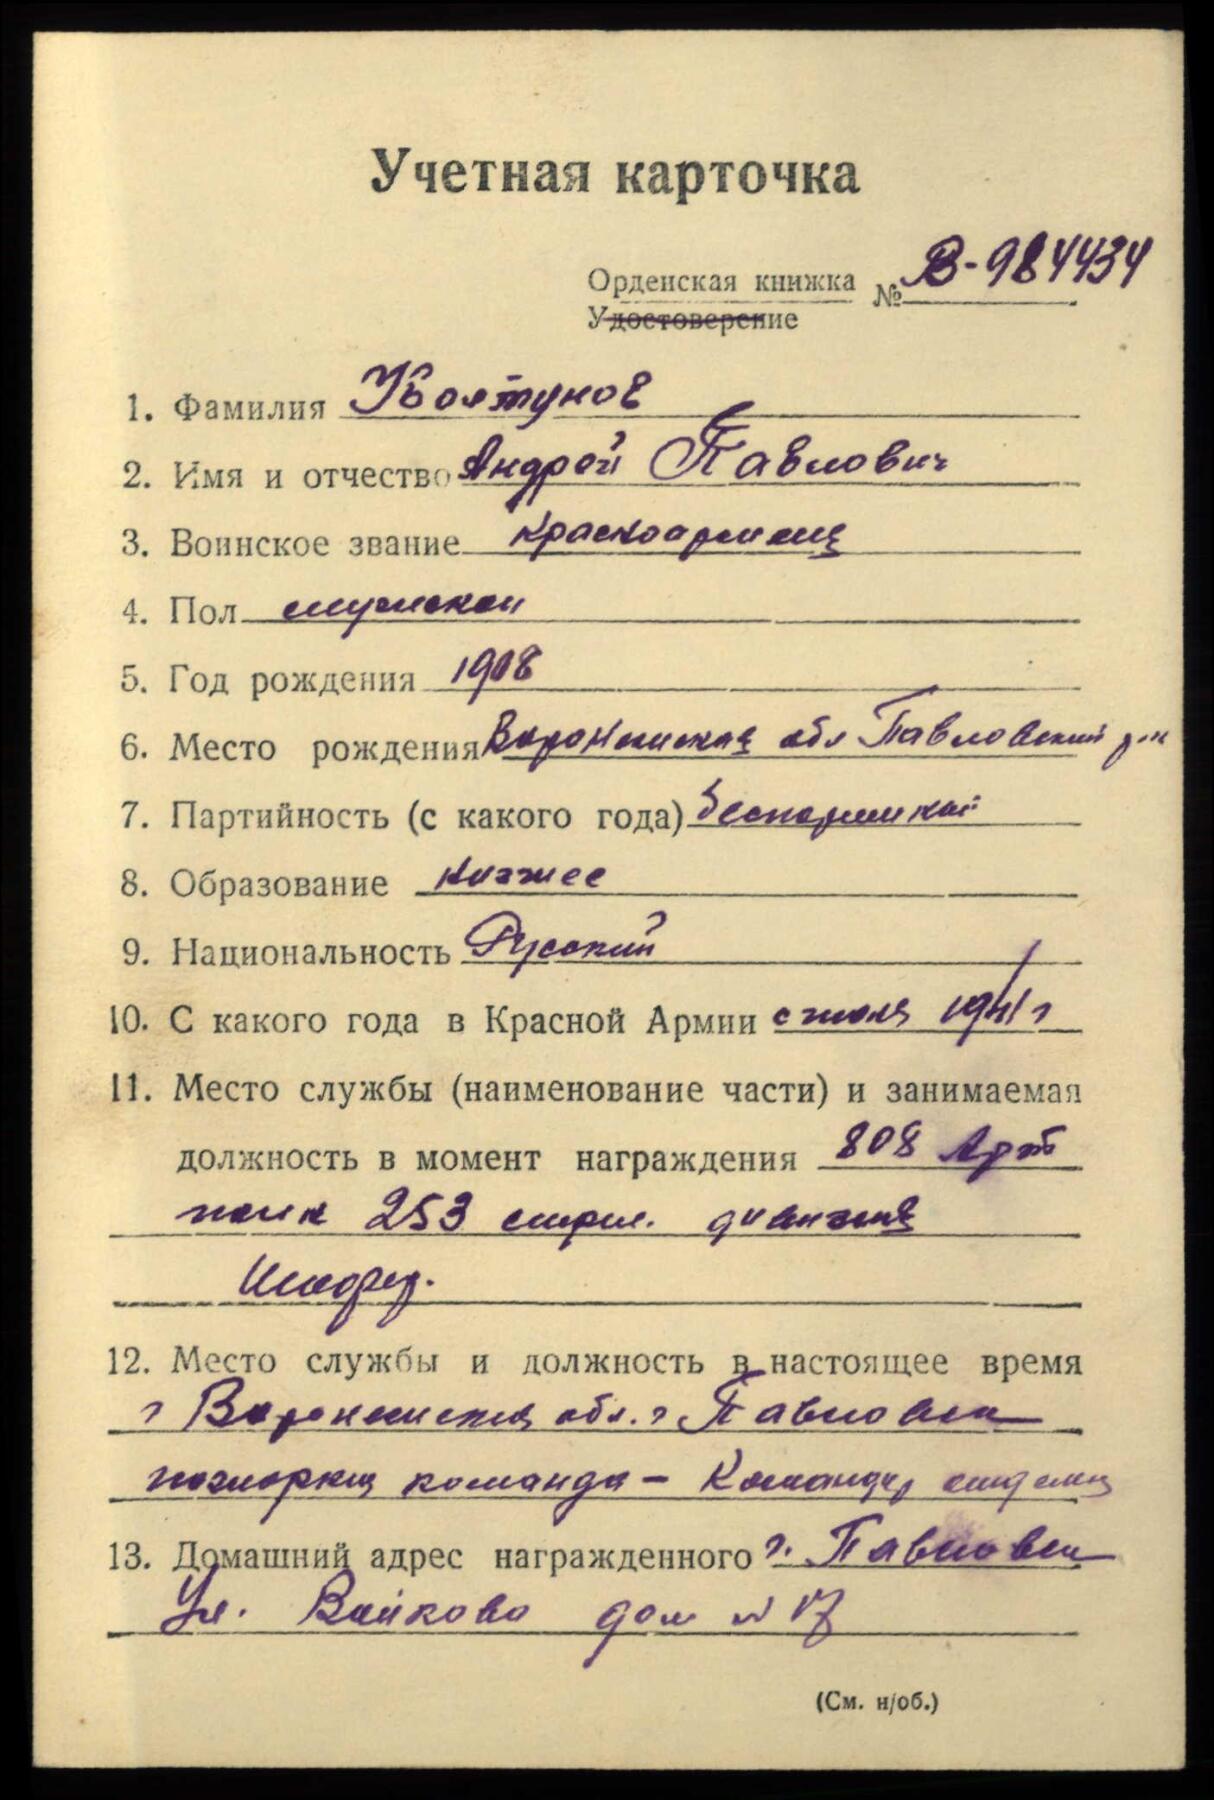 Учетная карточка
Орденская книжка № В-984434
Удостоверение
1. Фамилия Колтунов
2. Имя и отчество Андрей Павлович
3. Воинское звание красноармеец
4. Пол мужской
5. Год рождения 1908
6. Место рождения Воронежская обл Павловский р-н
7. Партийность (с какого года) беспартийный
8. Образование низшее
9. Национальность Русский
10. С какого года в Красной Армии с июля 1941 г
11. Место службы (наименование части) и занимаемая
должность в момент награждения 808 Арт
полк 253 стрел. дивизия
Шофер.
12. Место службы и должность в настоящее время
Воронежская обл. г Павловск
команда – Командир
13. Домашний адрес награжденного г. Павловск
Ул. Войкова дом № 17
(См. н/об.)